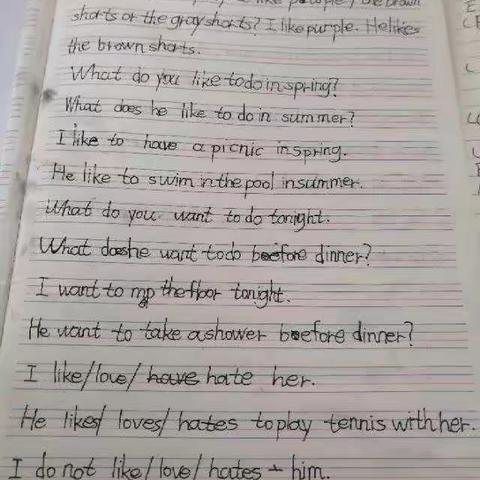 like people / the brown
shorts or the gray shorts? I like purple. He likes
the brown shorts.
What do you like to do in spring?
What does he like to do in summer?
I like to have a picnic in spring.
He like to swim in the pool in summer.
What do you want to do tonight.
What does he want to do before dinner?
I want to mop the floor tonight.
He want to take a shower before dinner?
I like/love/ have hate her.
He likes/ loves/ hates to play tennis with her.
I do not like/love/hates him.